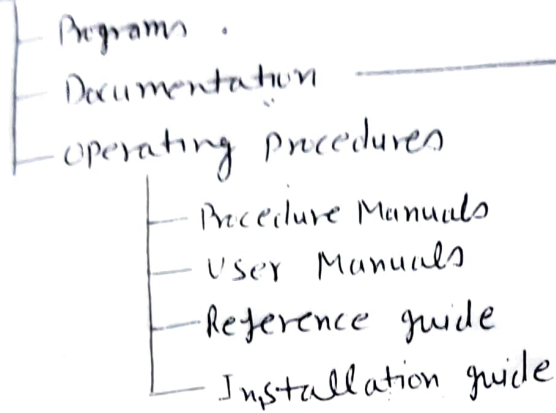 Programs .
Documentation
Operating Procedures
Procedure Manuals
User Manuals
Reference guide
Installation guide